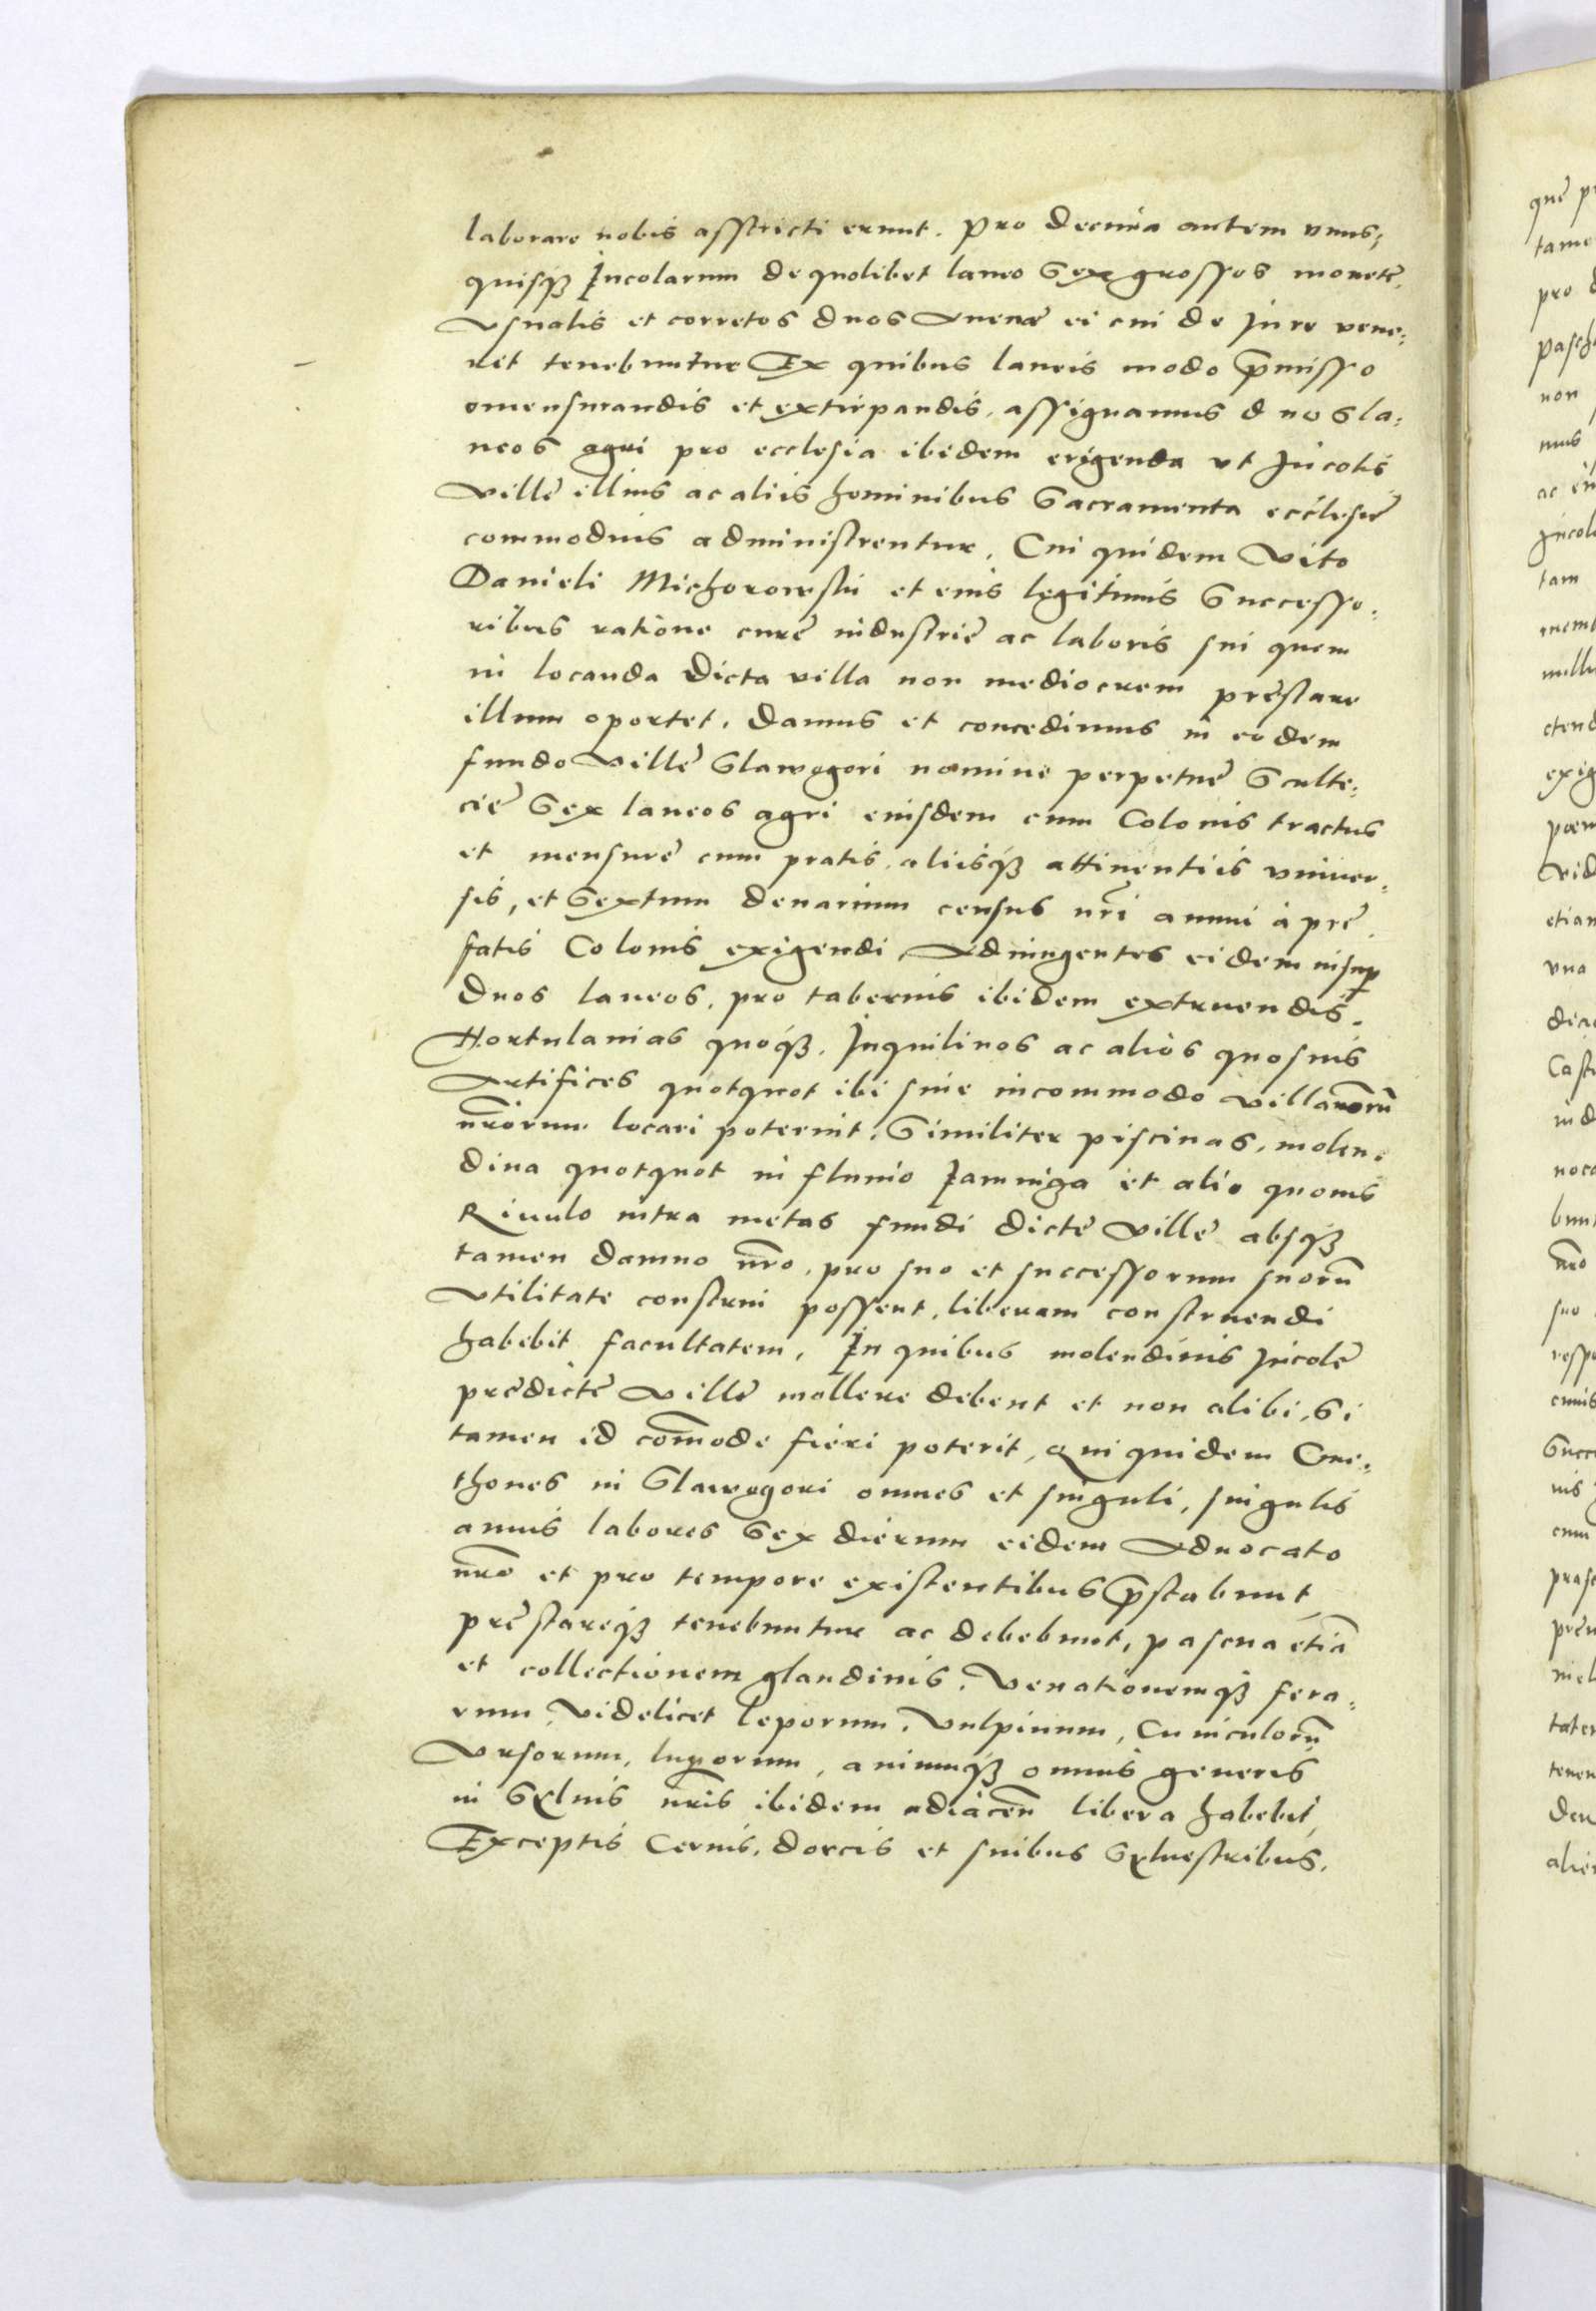 laborare nobis asstricti erunt. Pro decima autem vnus,
quisqȝ Incolarum de quolibet laneo Sex grossos monetę,
vsualis et corretos duos Auenæ ei cui de Iure vene,
ret tenebuntur Ex quibus laneis modo p̄misso
omensurandis et extirpandis, assignamus duos la,
neos agri pro ecclesia ibidem erigenda vt Incolis
villę illius ac aliis hominibus Sacramenta ecclesię
commodius administrentur. Cui quidem Vito
Danieli Michorowski et eius legitimis Successo,
ribus ratione curę industrię ac laboris sui quem
in locanda dicta villa non mediocrem pręstare
illum oportet. Damus et concedimus in eodem
fundo villę Slawogori nomine perpetuę Sculte,
cię Sex laneos agri eiusdem cum Colonis tractus
et mensurę cum pratis, aliisqȝ attinentiis vniuer,
sis, et Sextum denarium census nr̄i annui à prę,
fatis Colonis exigendi, Adiungentes eidem insup̱
duos laneos, pro tabernis ibidem extruendis.
Hortulanias quoqȝ, Inquilinos ac alios quosuis
Artifices quotquot ibi sine incommodo villanorū
nr̄orum locari poterint, Similiter piscinas, molen,
dina quotquot in fluuio Jamniga et alio quouis
Riuulo intra metas fundi dictę villę absqȝ
tamen damno nr̄o, pro suo et successorum suorū
vtilitate construi possent, liberam construendi
habebit facultatem, In quibus molendinis Incolę
prędictę villę mollere debent et non alibi, Si
tamen id com̄ode fieri poterit, Qui quidem Cme,
thones in Slawogori omnes et singuli, singulis
annis labores Sex dierum eidem Aduocato
nr̄o et pro tempore existentibus p̄stabunt
pręstareqȝ tenebuntur ac debebunt, pascua etiā
et collectionem glandinis, Venationemqȝ fera,
rum, videlicet leporum, Vulpium, Cuniculorū
Vrsorum, luporum, auiumqȝ omnis generis
in Syluis nr̄is ibidem adiaceñ libera habebit,
Exceptis Ceruis, dorcis et suibus Syluestribus,